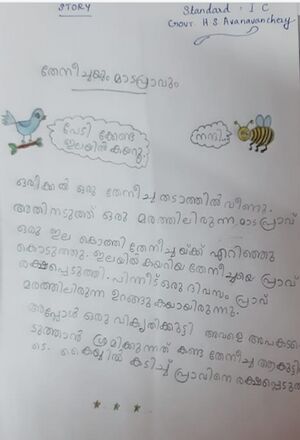 STORY
Standard : I C
Govt H S Avanavanchery
തേനീച്ചയും മാടപ്രാവും
പേടി ക്കേണ്ട
ഇലയിൽ കയറൂ.
നന്ദി...
ഒരിക്കൽ ഒരു തേനീച്ച തടാകത്തിൽ വീണു.
അതിനടുത്ത് ഒരു മരത്തിലിരുന്ന മാടപ്രാവ്
ഒരു ഇല കൊത്തി തേനീച്ചയ്ക്ക് എറിഞ്ഞു
കൊടുത്തു. ഇലയിൽ കയറിയ തേനീച്ചയെ പ്രാവ്
രക്ഷപ്പെടുത്തി. പിന്നീട് ഒരു ദിവസം പ്രാവ്
മരത്തിലിരുന്ന ഉറങ്ങുകയായിരുന്നു.
അപ്പോൾ ഒരു വികൃതിക്കുട്ടി അവളെ അപകടപ്പെ
ടുത്താൻ ശ്രമിക്കുന്നത് കണ്ട തേനീച്ച ആകുട്ടി
ടെ കൈയ്യിൽ കടിച്ച് പ്രാവിനെ രക്ഷപ്പെടുത്